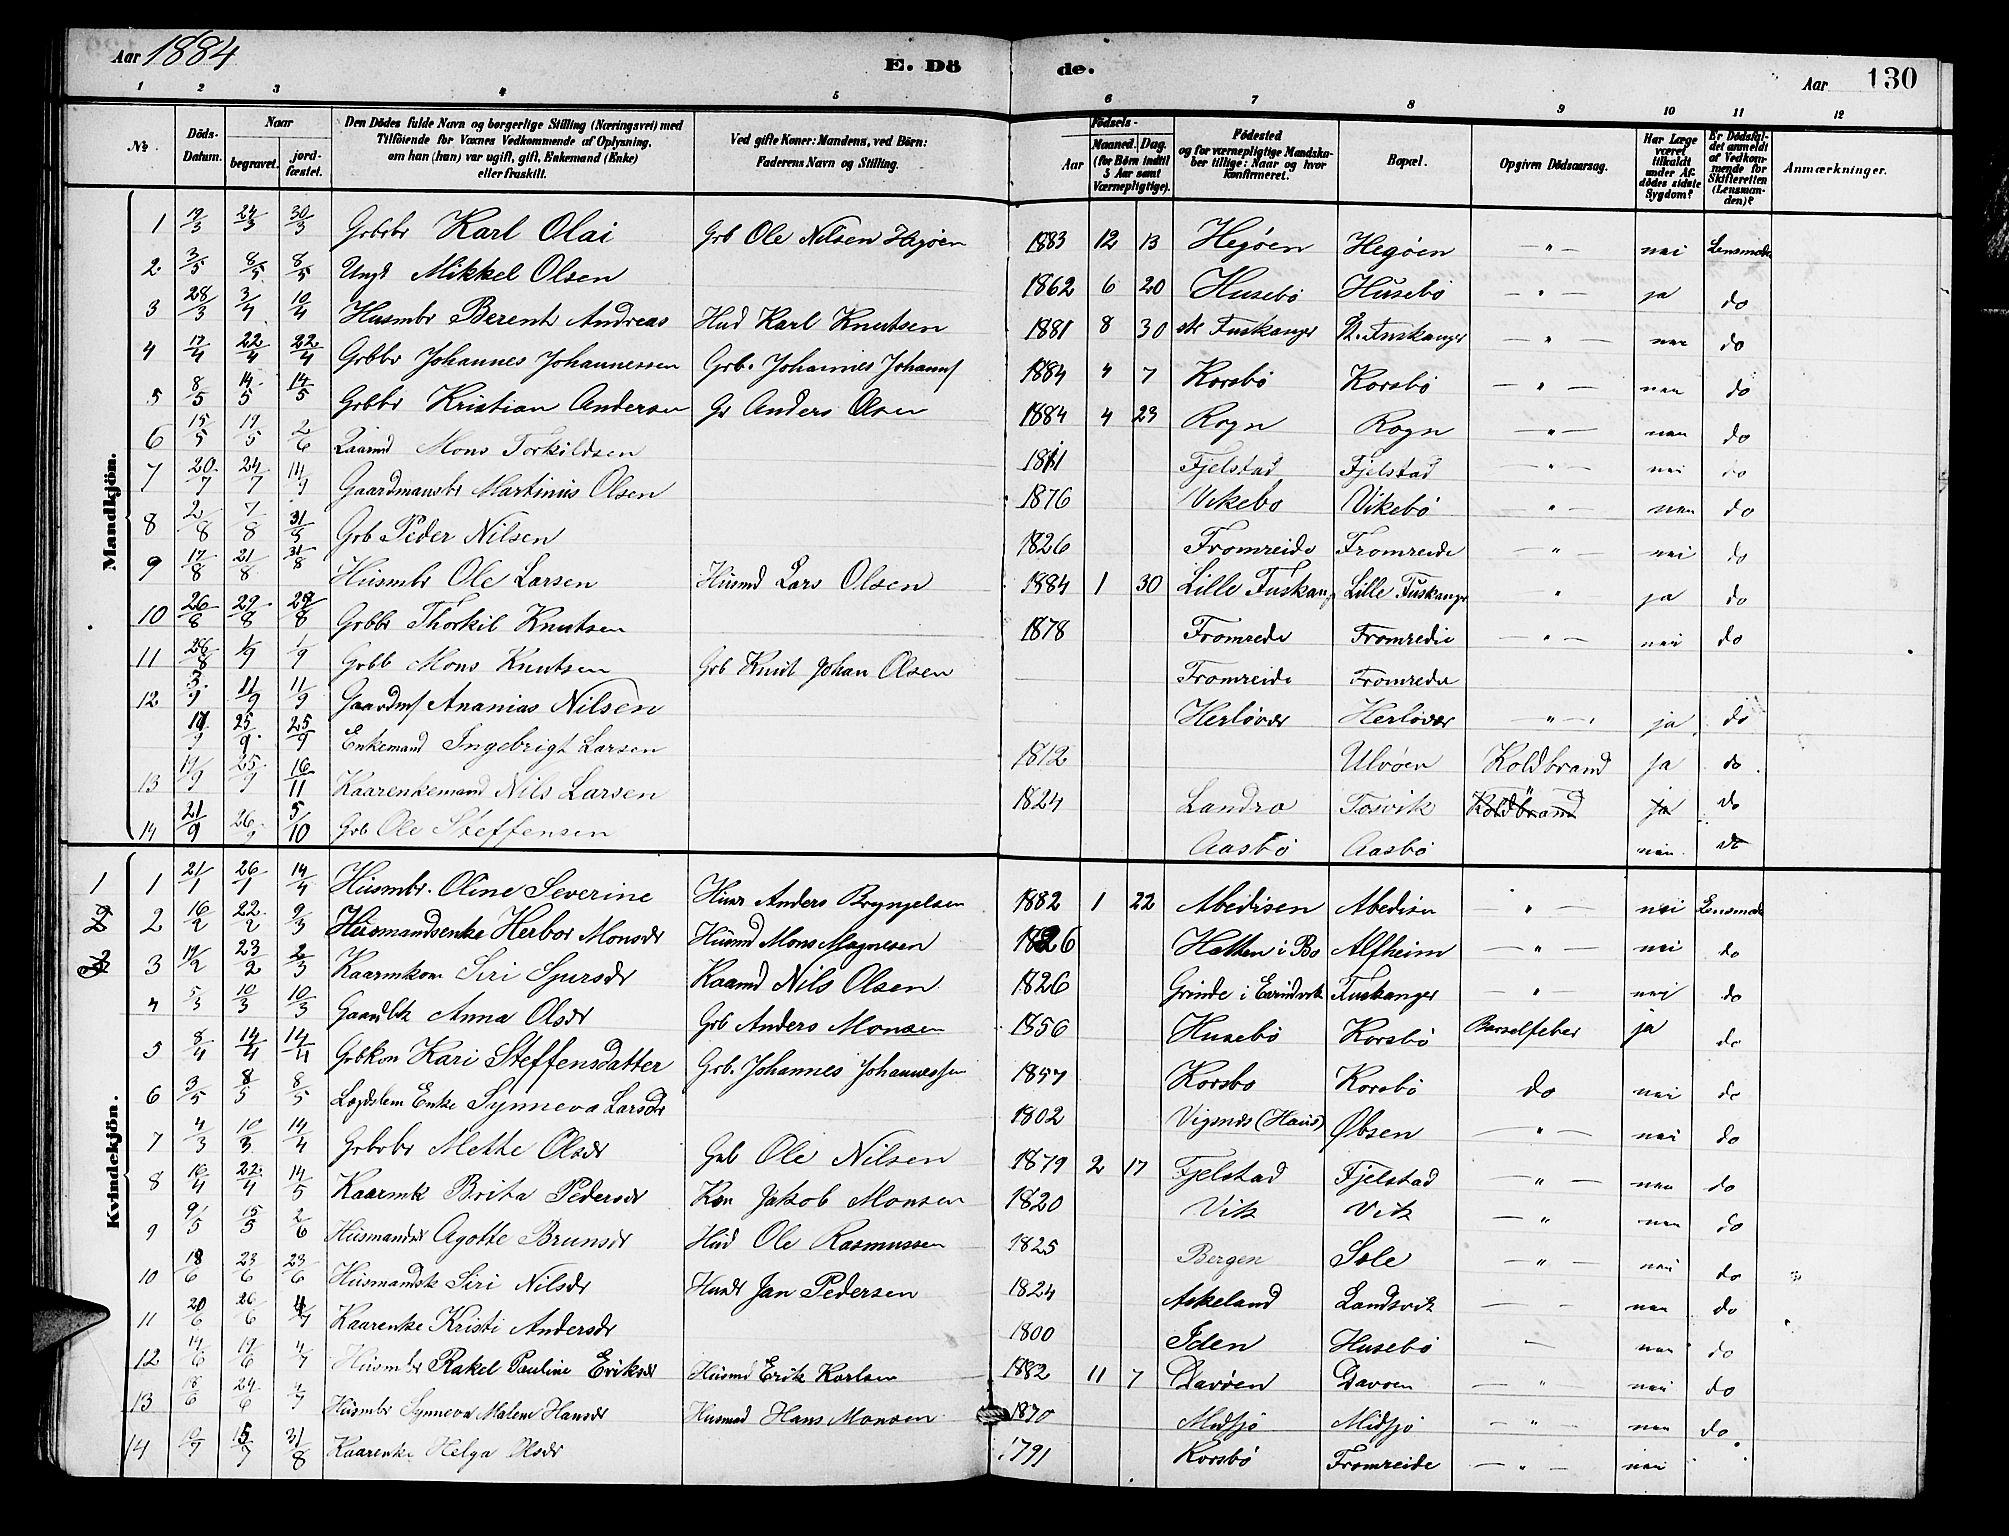 Aar 1884
E. Dö
de.
Aar
130
1 2 3 4 5 6 7 8 9 10 11 12
No.
Döds-Datum.
Naar
begravet.
jord-fæstet.
Den Dödes fulde Navn og borgerlige Stilling (Næringsvei) med
Tilföiende for Voxnes Vedkommende af Oplysning,
om han (hun) var ugift, gift, Enkemand (Enke)
eller fraskilt.
Ved gifte Koner: Mandens, ved Börn:
Faderens Navn og Stilling.
Födsels-
Aar
Maaned. Dag.
(for Börn indtil
5 Aar samt
Værnepligtige).
Födested
og for værnepligtige Mandska-
ber tillige: Naar og hvor
konfirmeret.
Bopæl.
Opgiven Dödsaarsag.
Har Læge
været
tilkaldt
under Af-
dödes sidste
Sygdom?
Er Dödsfal-
det anmeldt
af Vedkom-
mende for
Skifteretten
(Lensman-
den)?
Anmærkninger.
Mandkjön.
1 19/3 24/3 30/3 Grbrbr Karl Olai Grb Ole Nilsen Hegöen 1883 12 13 Hegöen Hegöen — " — nei Lensmd
2 3/5 8/5 8/5 Ungk Mikkel Olsen 1862 6 20 Husebö Husebö — " — ja do
3 28/3 3/4 10/4 Husmbr Berent Andreas Hud Karl Knutsen 1881 8 30 str Fuskanger St. Fuskanger — " — nei do
4 17/4 22/4 22/4 Grbbr Johannes Johannessen Grb. Johannes Johannf 1884 " 7 Korsbö Korsbö — " — nei do
5 8/5 14/5 14/5 Grbbr Kristian Andersen Gr Anders Olsen 1884 4 23 Rogn Rogn — " — nei do
6 15/5 19/5 2/6 Kaarmd Mons Torkildsen 1811 Fjelstad Fjelstad — " — nei do
7 20/7 24/7 14/9 Gaardmansbr Martinus Olsen 1876 Vikebo Vikebö — " — nei do
8 2/8 7/8 31/5 Grb Peder Nilsen 1826 Fromreide Fromreide — " — nei do
9 17/8 21/8 31/8 Husmbr Ole Larsen Husmd Lars Olsen 1884 1 30 Lille Fuskang Lille Fuskanger " ja do
10 26/8 29/8 29/8 Grbbr Thorkil Knutsen 1878 Fromrede Fromredie — " — nei do
11 26/8 1/9 1/9 Grbb Mons Knutsen Grb Knut Johan Olsen Fromreide Fromredie
12 3/9 11/9 11/9 Gaardmf Ananias Nilsen Herlövær Herlövær — " — ja do
17/9 25/9 25/9 Enkemand Ingebrigt Larsen 1812 Ulvöen Koldbrand ja do
13 17/9 25/9 16/11 Kaarenkemand Nils Larsen 1824 Landro Tosvik Koldbrand ja do
14 21/9 26/9 5/10 Grb Ole Steffensen Aasbö Aasbö nei do
Kvindekjön.
1 1 21/1 26/1 14/4 Husmbr. Oline Severine Husr Anders Bryngelsen 1882 1 22 Abedisen Abedisen " — nei Lensmd
2 2 16/2 22/2 9/3 Husmandsenke Herbor Monsdr Husmd Mons Magnesen 1826 Hatten i Bo Alfheim — " — nei do
3 3 17/2 23/2 2/3 Kaarmkon Siri Sjursdr Kaarmd Nils Olsen 1826 Grinde i Evindvik Fuskanger — " nei do
4 5/3 10/3 10/3 Gaardbk Anna Olsdr Grb Anders Monsen 1856 Husebö Korsbö Barselfeber ja do
5 8/4 14/4 14/4 Grbkon Kari Steffensdatter Grb. Johannes Johannessen 1857 Korsbo Korsbö do nei do
6 3/5 8/5 8/5 Lægdslem Enke Synneva Larsdr 1802 Vigsnds (Haus) Öbsen — " — nei do
7 4/3 10/3 14/4 Grbrbr Mette Olsdr Grb Ole Nilsen 1879 2 17 Fjelstad Fjelstad — " — nei do
8 16/4 22/4 14/5 Kaarmk Brita Pedersdr Kaa Jakob Monsen 1820 Vik Vik — " nei do
9 9/5 15/5 2/6 Husmandsk Agotte Brunsdr Hud Ole Rasmussen 1825 Bergen Sole — " — nei do
10 18/6 23/6 23/6 Husmandsk Siri Nilsdr Husdr Jan Pedersen 1824 Askeland Landsvik — — nei do
11 20/6 26/6 4/7 Kaarenke Kristi Andersdr 1800 Iden Husebö — nei do
12 14/6 19/6 4/7 Husmbr Rakel Pauline Eriksdr Husmd Erik Karlsen 1882 11 7 Davöen Davöen — " nei do
13 18/6 24/6 4/7 Husmbr Synneva Malene Hansdr Husmd Hans Monsen 1870 Midsjö Midsjö — " — nei do
14 10/7 15/7 31/8 Kaarenke Helga Olsdr 1791 Korsbö Fromreide — " — nei